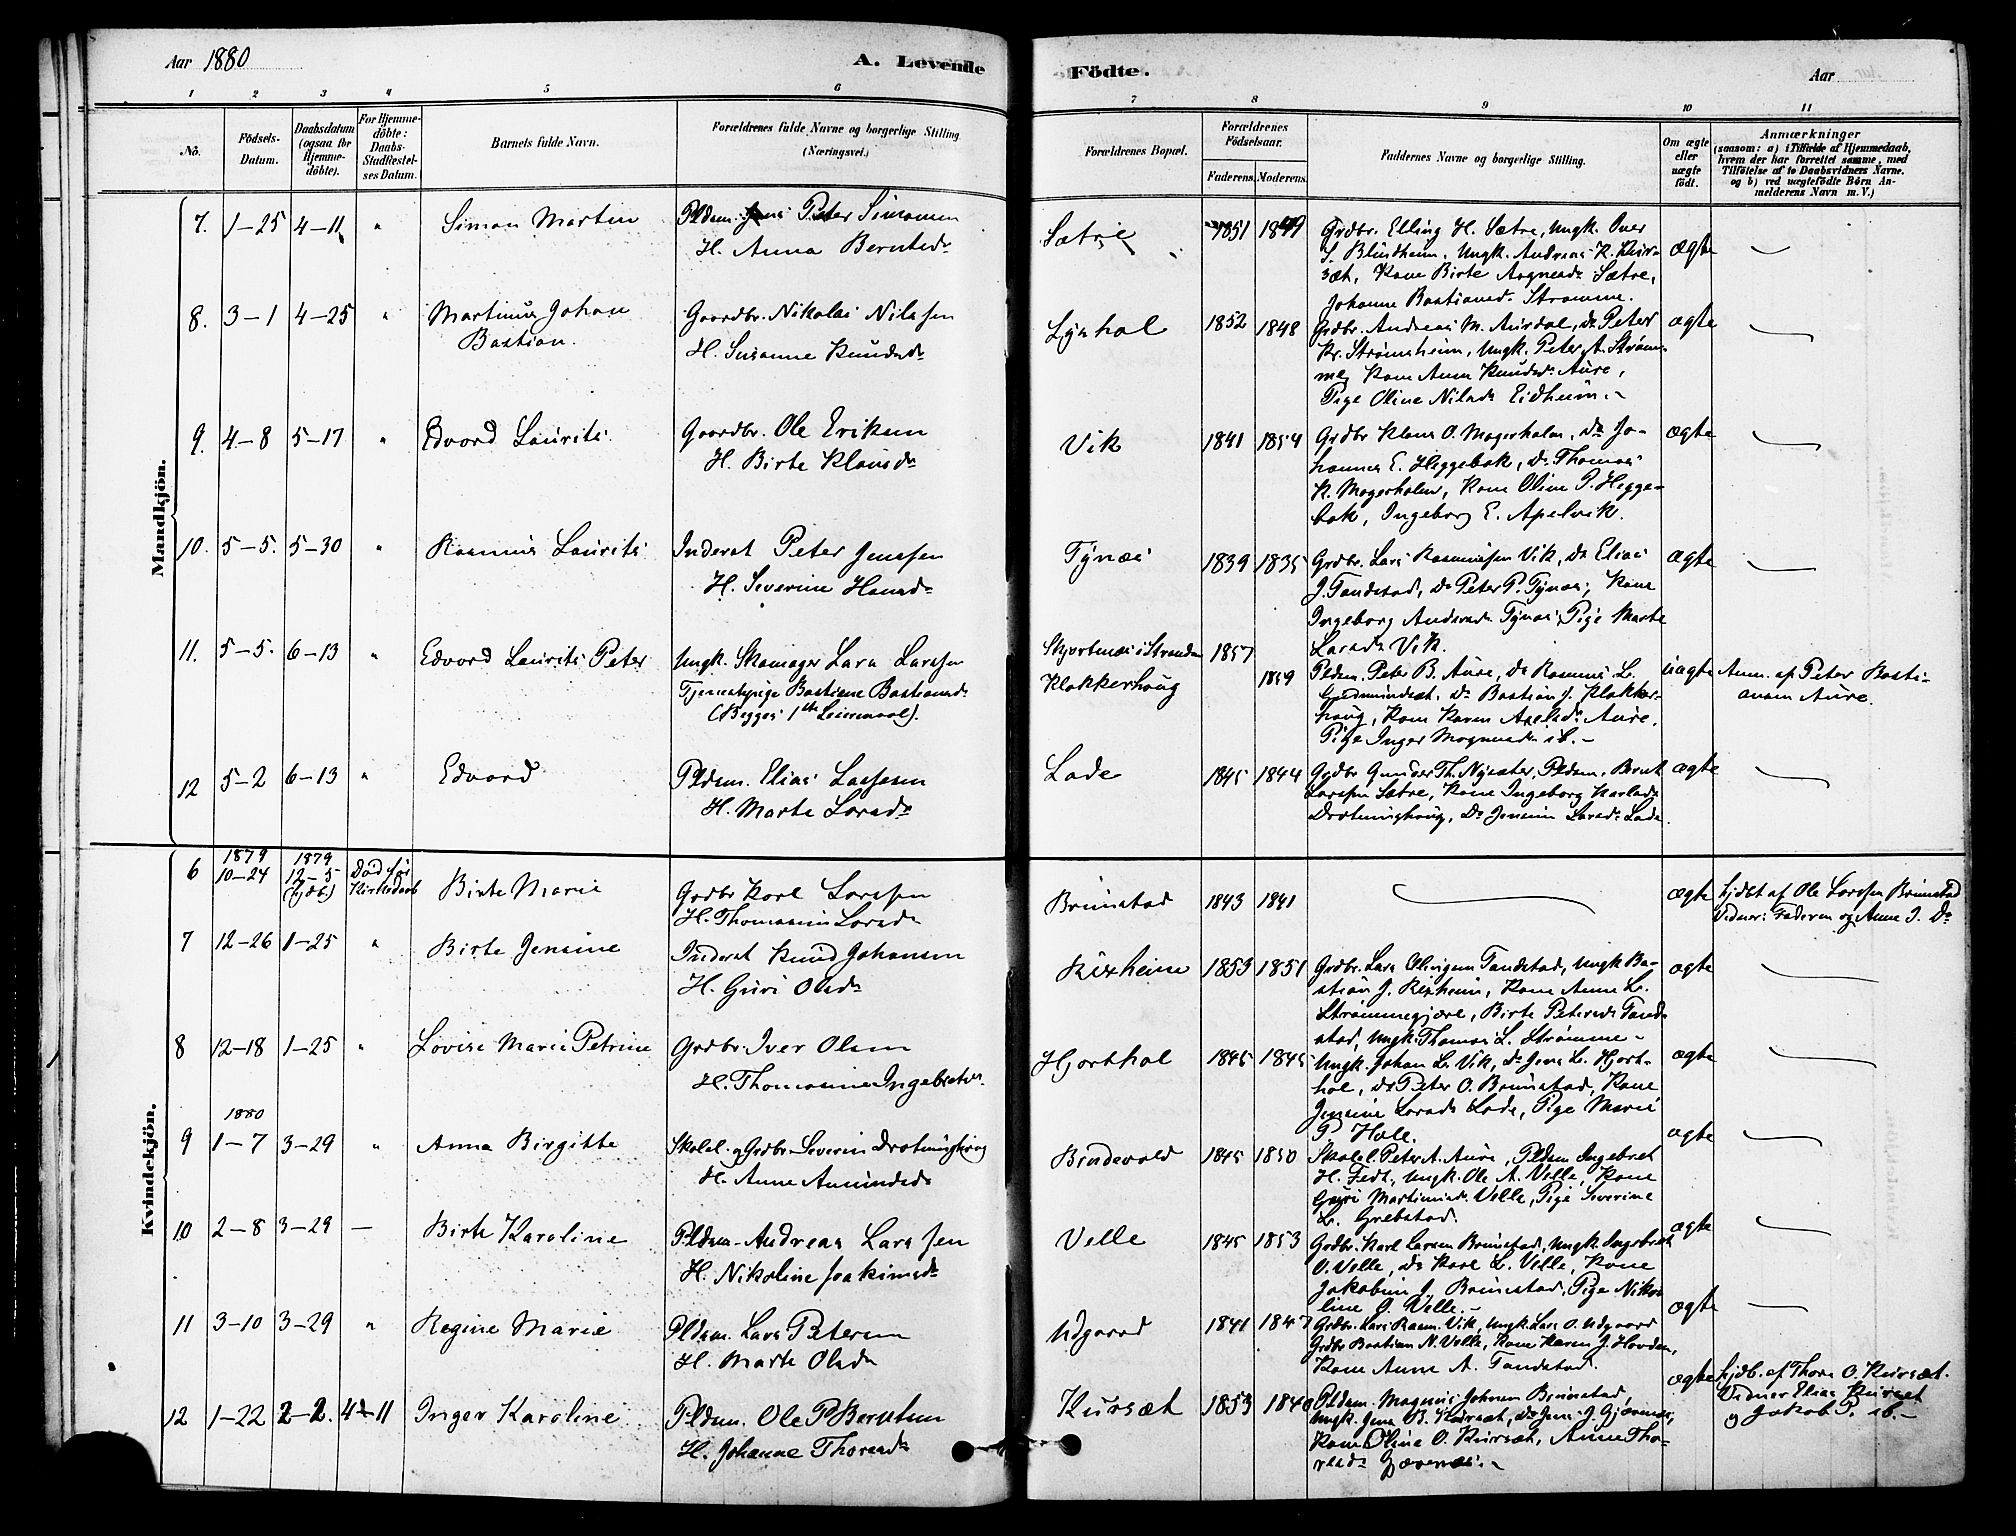 Aar 1880
A. Levende
Födte.
Aar
1 2 3 4 5 6 7 8 9 10 11
No.
Födsels-Datum.
Daabsdatum (ogsaa for Hjemme-döbte).
For Hjemme-döbte: Daabs-Stadfæstel-ses Datum.
Barnets fulde Navn.
Forældrenes fulde Navne og borgerlige Stilling. (Næringsvei.)
Forældrenes Bopæl.
Forældrenes Födselsaar.
Faderens. Moderens.
Faddernes Navne og borgerlige Stilling.
Om ægte eller uægte födt.
Anmærkninger
(saasom: a) i Tilfælde af Hjemmedaab, hvem der har forrettet samme, med Tilföielse af to Daabsvidners Navne. og b) ved uægtefödte Börn An-melderens Navn m. V.)
Mandkjön.
7. 1-25 4-11 " Simon Martin
Pldsm. Peter Simonsen
H. Anna Berntsdr
Sætre 1851 1849
Grdbr. Elling H. Sætre, Ungk. Iver
S. Blindheim, Ungk. Andreas K. Kur-
sæt, Kone Birte Aagesdr Sætre,
Johanne Bastiansdr Strømme.
ægte
8. 3-1 4-25 " Martinus Johan
Bastian.
Gaardbr. Nikolai Nilssen
H. Susanne Knudsdr
Lynhol 1852 1848
Grdbr. Andreas M. Aurdal, do Peter
Kr. Strømsheim, Ungk. Peter A. Strøm-
me, Kone Anne Knudsdr Aure,
Pige Oline Nilsdr Eidheim.
ægte
9. 4-8 5-17 " Edvard Laurits
Gaardbr. Ole Eriksen
H. Birte Klausdr
Vik 1841 1854
Grdbr Klaus O. Magerholm, do Jo-
hannes E. Heggebak, do Thomas
K. Magerholm, Kone Oline P. Hegge-
bak, Ingeborg E. Apelvik.
ægte
10. 5-5. 5-30 " Rasmus Laurits
Inderst Peter Jenssen
H. Severine Hansdr
Tynæs 1839 1835
Grdbr. Lars Rasmussen Vik, do Elias
J. Tandstad, do Peter P. Tynæs, Kone
Ingeborg Andersdr Tynæs, Pige Marte
Larsdr Vik.
ægte
11. 5-5. 6-13 " Edvard Laurits Peter
Ungk. Skomager Lars Larssen
Tjenestepige Bastiane Bastiansdr
(Begges 1ste Leiermaal).
Skjortnæs i Stranden
Klokkerhoug
1857
1859
Pldsm. Peter B. Aure, do Rasmus L.
Gudmundsæt, do Bastian J. Klokker-
houg, Kone Karen Axelsdr Aure,
Pige Inger Mognesdr ib.
uægte
Anm. af Peter Basti-
ansen Aure.
12 5-2 6-13 " Edvard
Pldsm. Elias Lassesen
H. Marte Larsdr
Lade 1845 1844
Grdbr Gunder Th. Nysæter, Pldsm. Bernt
Larssen Sætre, Kone Ingeborg Karlsdr
Drotninghoug, do Jensine Larsdr Lade.
ægte
Kvindekjön.
6 1879 10-24 1879 12-5 (hjdb) Død før Kirkedaab
Birte Marie
Grdbr Karl Larssen
H. Thomasine Larsdr
Brunstad 1843 1841
ægte
hjdbt af Ole Larssen Brunstad
Vidner: Faderen og Anne I. do
7 12-26 1-25 " Birte Jensine
Inderst Knud Johansen
H. Guri Olsdr
Rixheim 1853 1851
Grdbr. Lars Tandstad, Ungk Ba-
stian J. Rixheim, Kone Anne L.
Strømmegjære, Birte Petersdr Tand-
stad, Ungk. Thomas L. Strømme
ægte
8 12-18 1-25 " Lovise Marie Petrine
Grdbr. Iver Olsen
H. Thomasine Ingebretsdr.
Hjorthol 1845 1845
Ungk. Johan L. Vik, do Jens L. Hjort-
hol, do Peter O. Brunstad, Kone
Jensine Larsdr Lade, Pige Marie
P. Hole.
ægte
9 1880 1-7 3-29 " Anna Birgitte
Skolel. og Grdbr. Severin Drotninghoug
H. Anne Amundsdr
Bindevold 1845 1850
Skolel. Peter A. Aure, Pldsm Ingebret
H. Fedt, Ungk. Ole A. Velle, Kone
Guri Martinusdr Velle, Pige Severine
L. Grebstad.
ægte
10 2-8 3-29 — Birte Karoline
Pldsm. Andreas Larssen
H. Nikoline Joakimsdr
Velle 1845 1853
Grdbr. Karl Larsen Brunstad, Ungk. Ingebret
O. Velle, do Karl L. Velle, Kone
Jakobine J. Brunstad, Pige Niko-
line O. Velle.
ægte
11 3-10 3-29 " Regine Marie
Pldsm. Lars Petersen
H. Marte Olsdr
Udgaard 1841 1847
Grdbr. Lars Rasm. Vik, Ungk. Lars O. Udgaard
Grdbr Bastian N. Velle, Kone Karen J. Hovden,
Kone Anne A. Tandstad.
ægte
12 1-22 2-2. 4-11 Inger Karoline
Pldsm. Ole P Berntsen
H. Johanne Thoresdr
Kursæt 1853 1840
Pldsm. Magnus Johnsen Brunstad,
Ungk. Jens B. Kursæt, do Jens J. Gjævenæs,
Kone Oline O. Kursæt, Anne Tho-
resdr Gjævenæs.
ægte
hjdb. af Thore O. Kursæt.
Vidner Elias Kursæt
og Jakob P. ib.